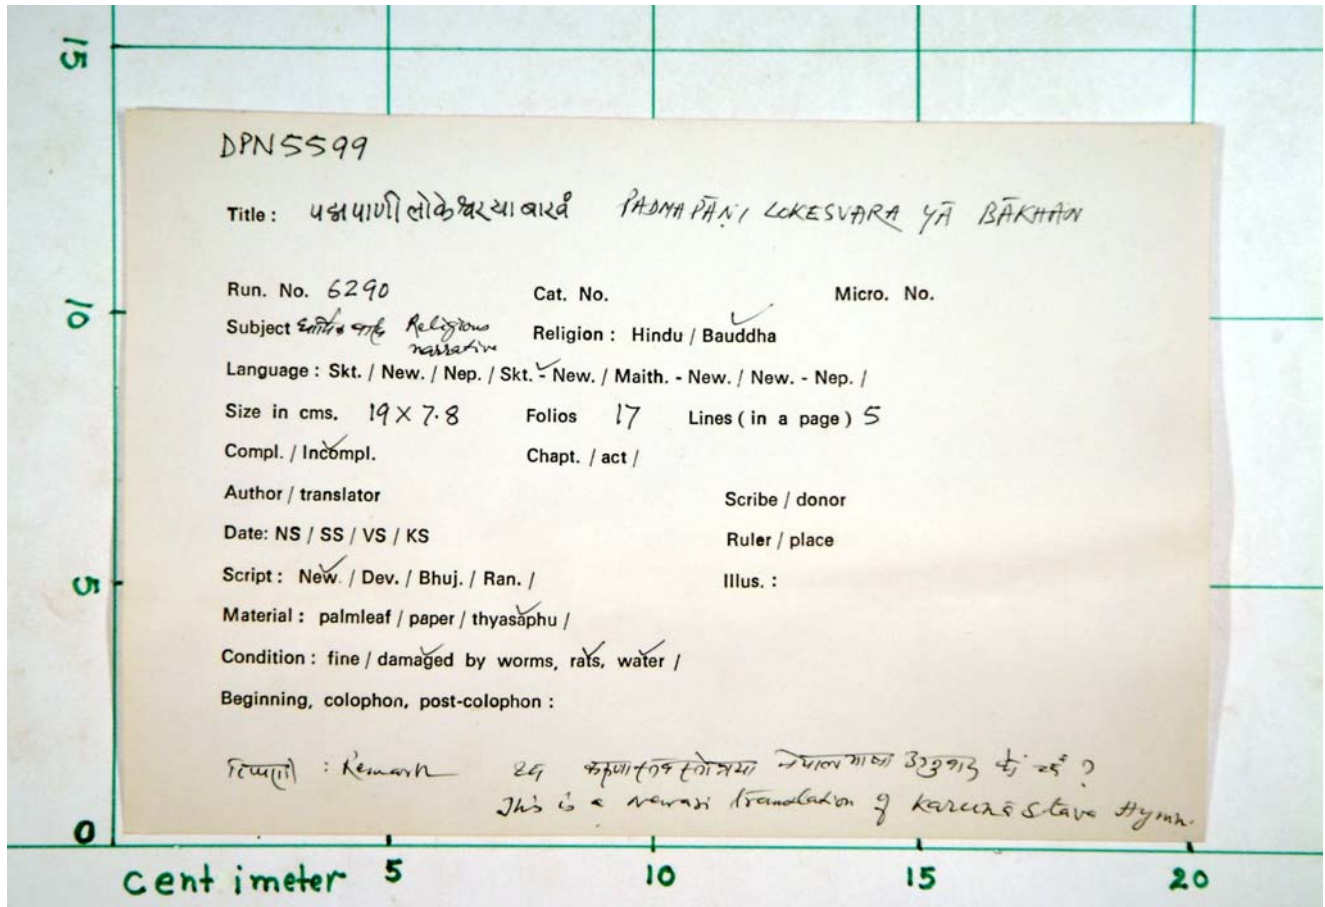 15
DPN5599
Title : पद्मपाणी लोकेश्वरया बाखँ PADMAPĀṆI LOKESVARA YĀ BĀKHAN
10
Run. No. 6290 Cat. No. Micro. No.
Subject धार्मिक Religious narrative Religion : Hindu / Bauddha
Language : Skt. / New. / Nep. / Skt. - New. / Maith. - New. / New. - Nep. /
Size in cms. 19 X 7.8 Folios 17 Lines ( in a page ) 5
Compl. / Incompl. Chapt. / act /
Author / translator Scribe / donor
Date: NS / SS / VS / KS Ruler / place
5
Script : New. / Dev. / Bhuj. / Ran. / Illus. :
Material : palmleaf / paper / thyasaphu /
Condition : fine / damaged by worms, rats, water /
Beginning, colophon, post-colophon :
टिप्पणी : Remark करुणास्तव स्तोत्रया नेपालभाषा अनुवाद ?
This is a newari translation of Karunā Stava Hymn.
0
centimeter 5 10 15 20